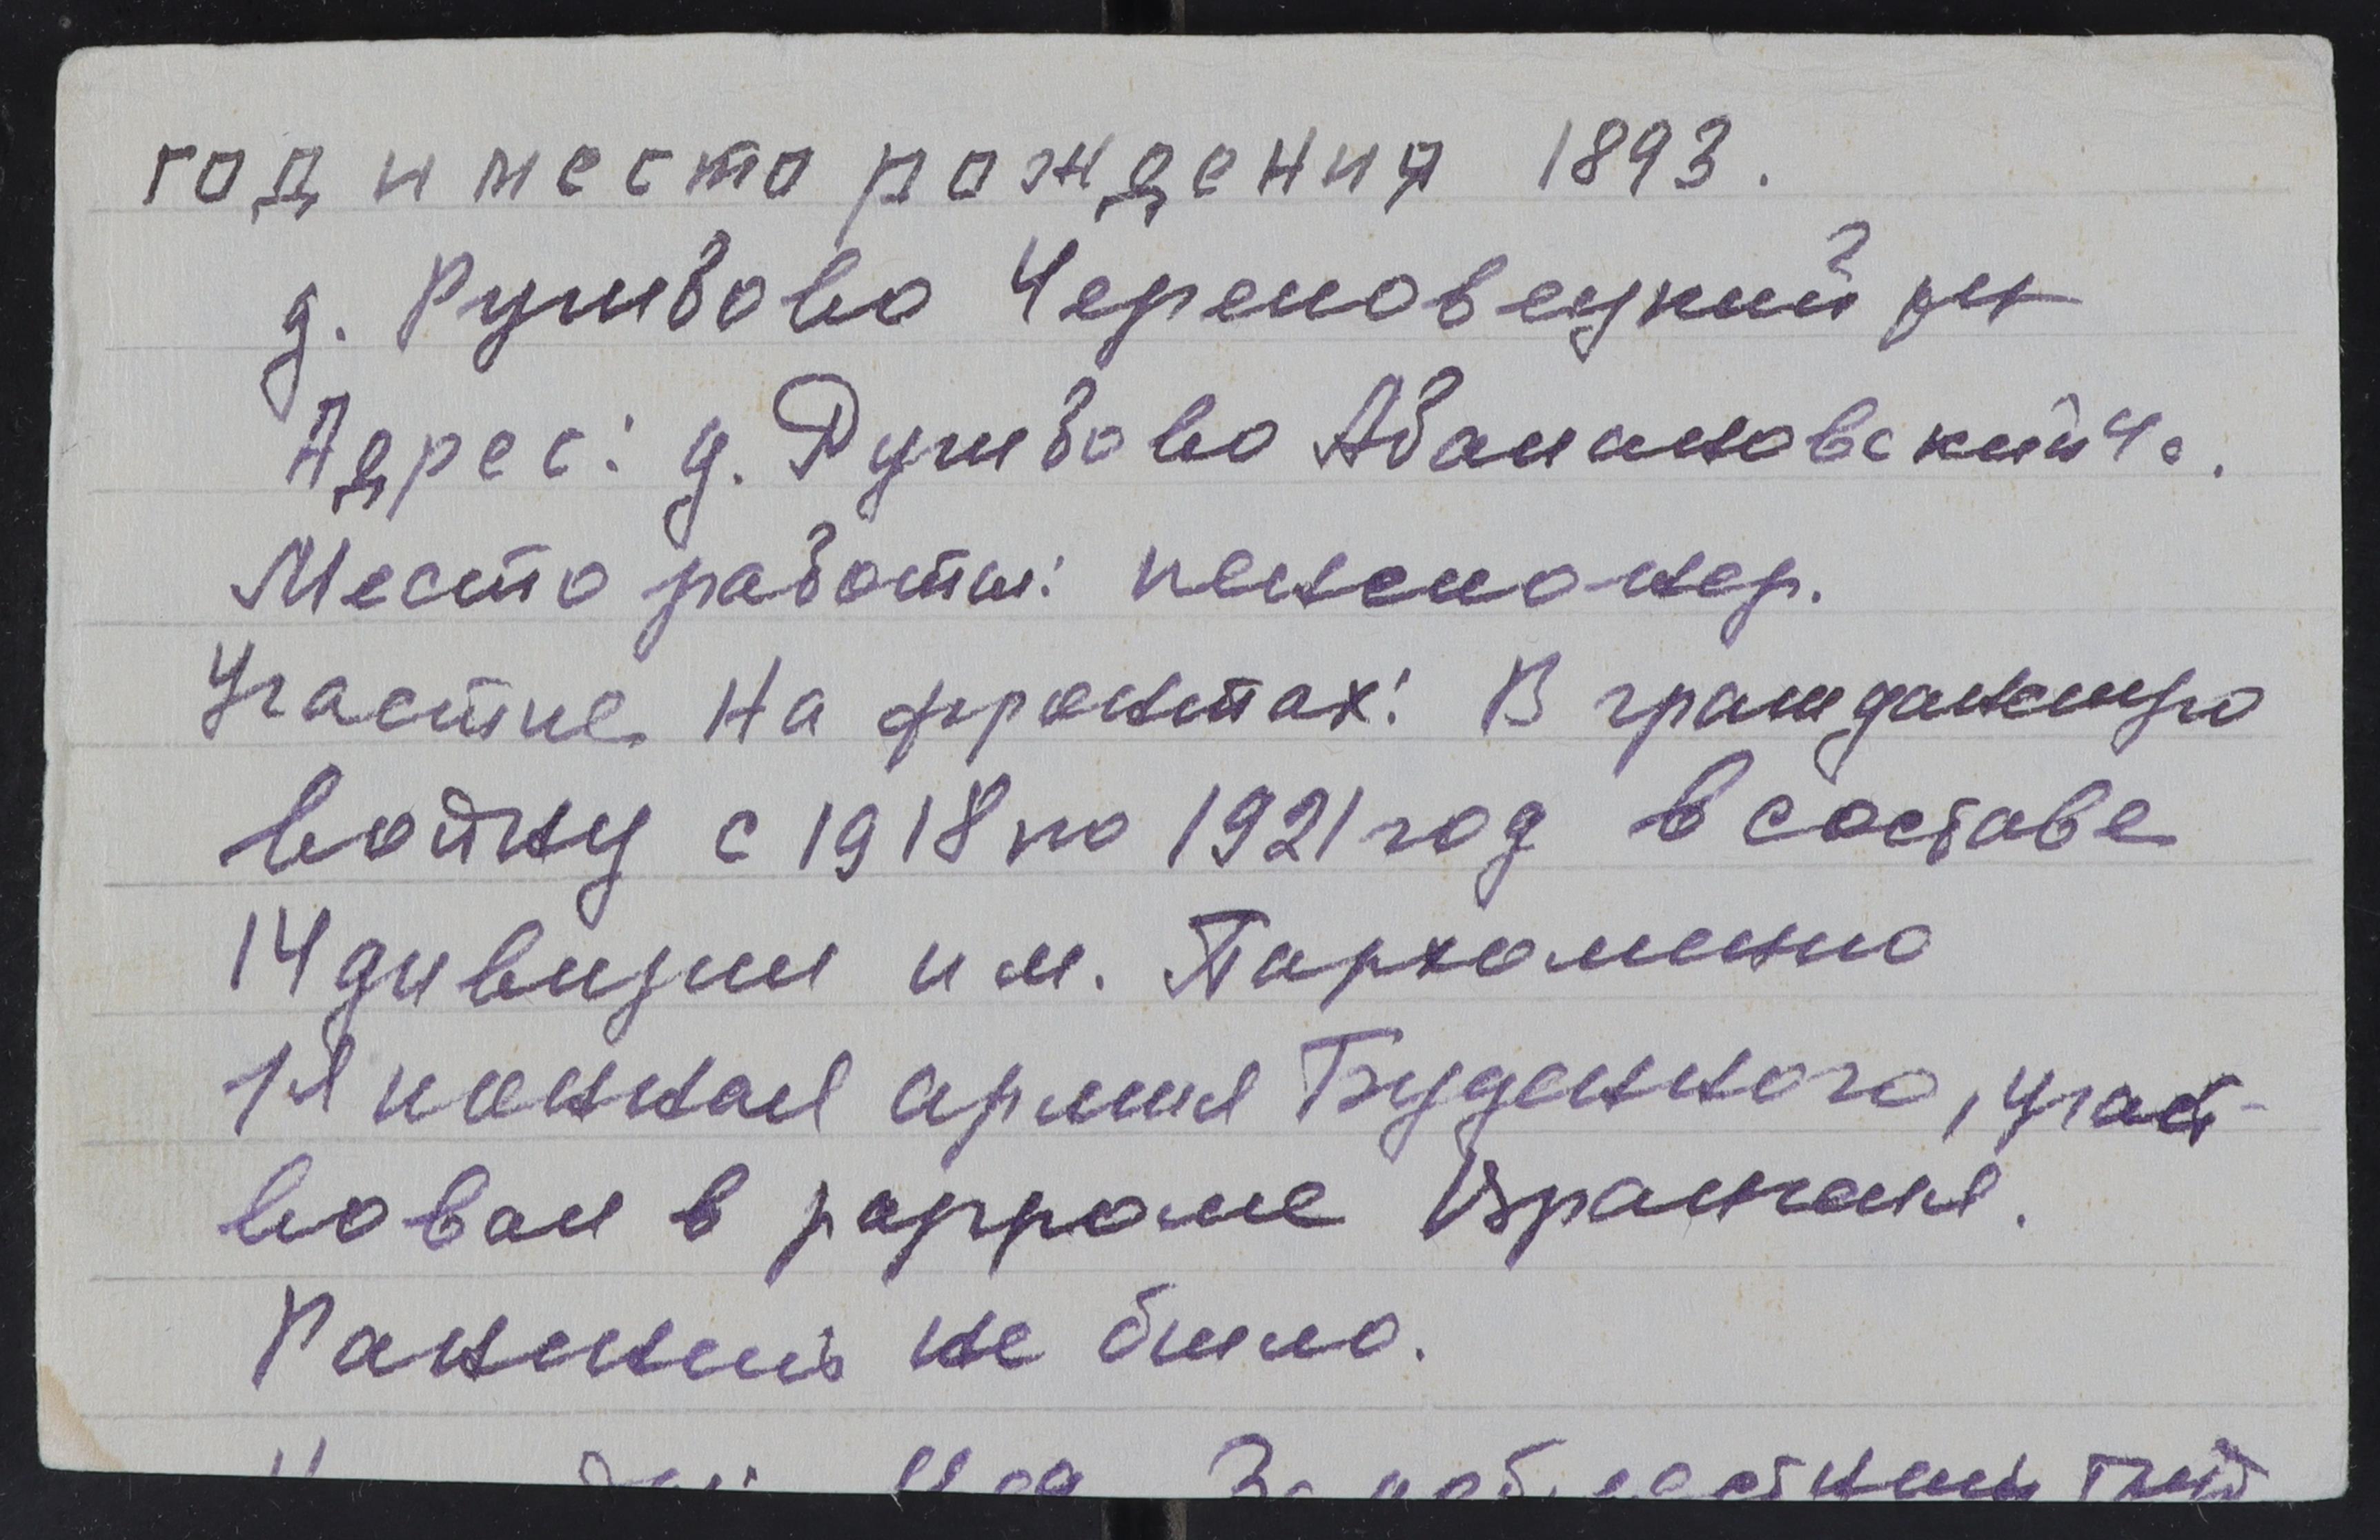 год и место рождения 1893.
д. Румбово Череповецкий рн
Адрес: д. Румбово Абакановский ч с.
Место работы: пенсионер.
Участие на фронтах: В гражданскую
войну с 1918 по 1921 год в составе
14 дивизии им. Пархоменко
1я конная армия Буденного, участ-
вовал в разгроме Врангеля.
Ранений не было.